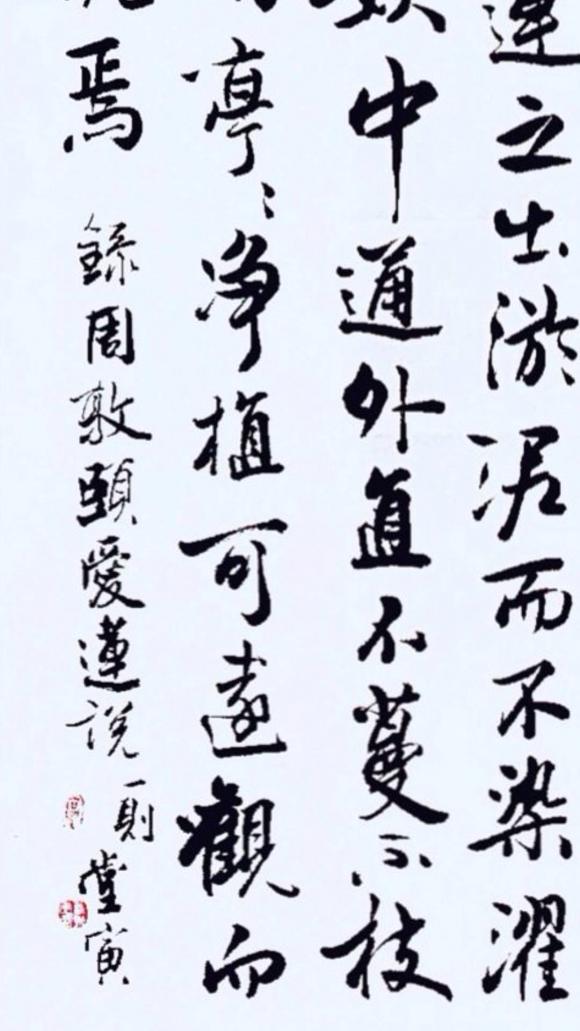 蓮之出淤泥而不染濯
妖中通外直不蔓不枝
亭〻净植可遠觀而
焉 錄周敦頤愛蓮說一則
堂寅